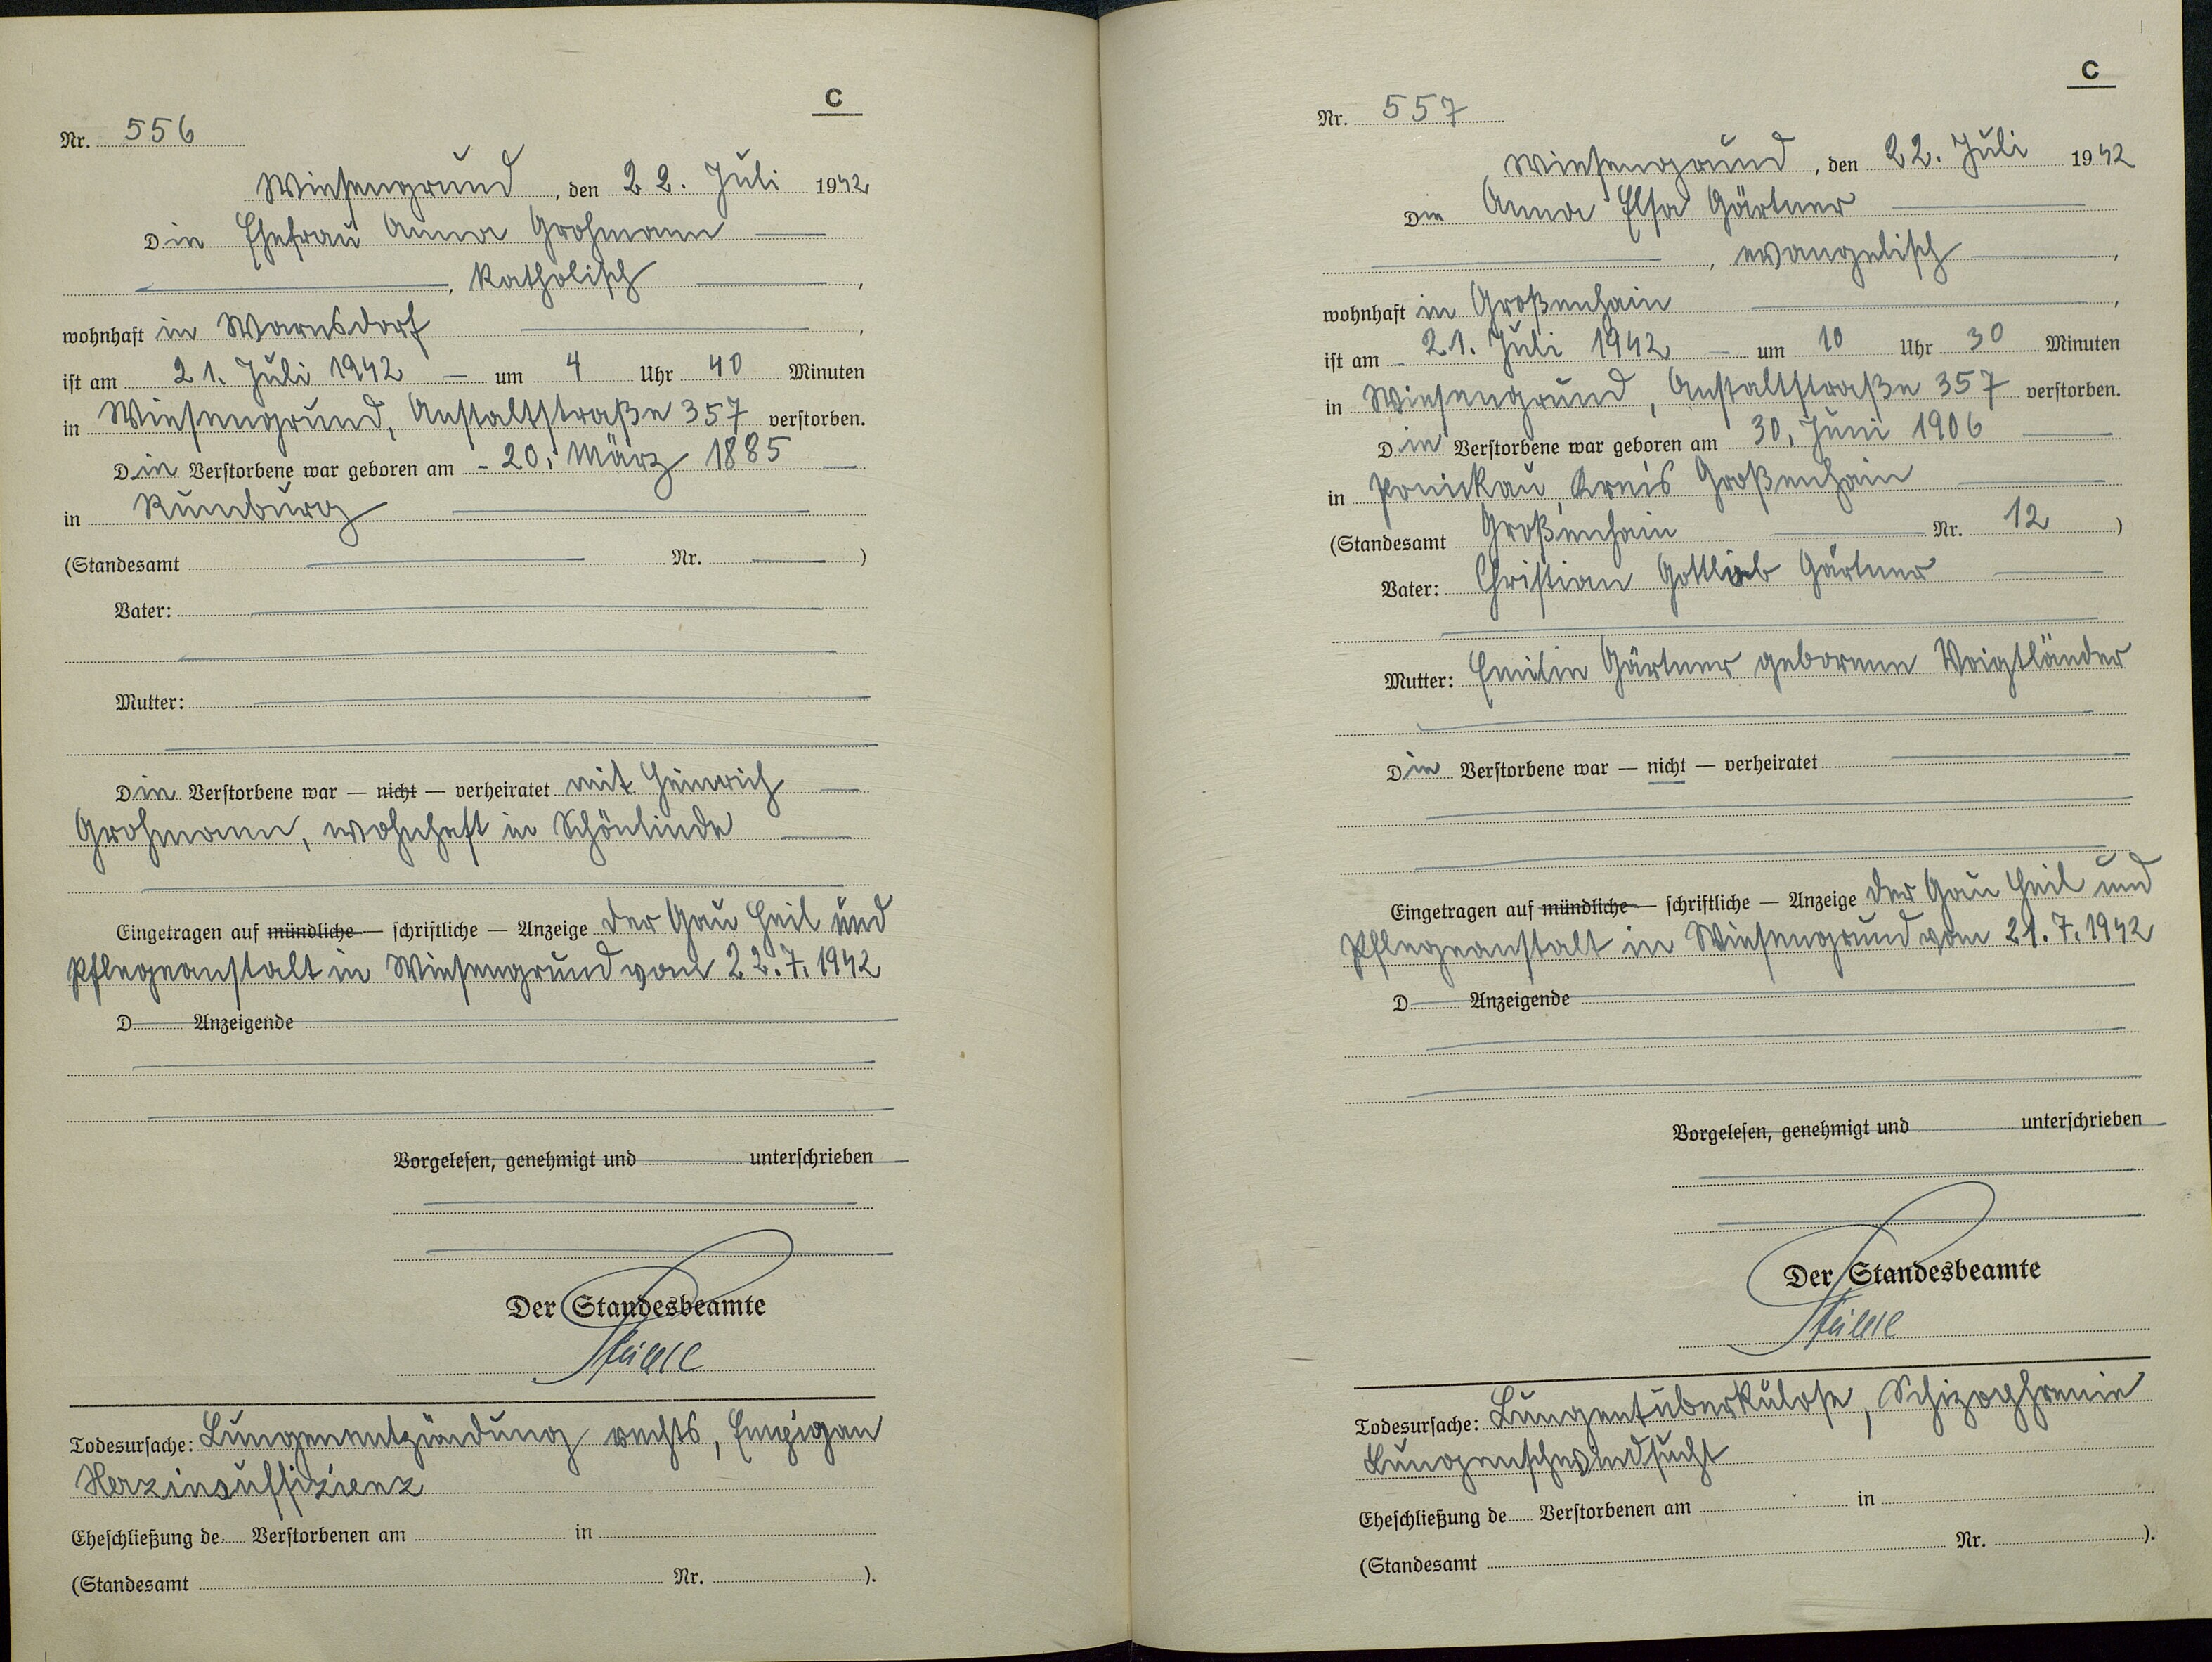 C
Nr. 556
Wiesengrund, den 22. Juli 1942
Die Ehefrau Anna Grohmann
, katholisch ,
wohnhaft in Warnsdorf ,
ist am 21. Juli 1942 um 4 Uhr 40 Minuten
in Wiesengrund, Anstaltstraße 357 verstorben.
Die Verstorbene war geboren am 20. März 1885
in Rumburg
(Standesamt Nr. )
Vater:
Mutter:
Die Verstorbene war — nicht — verheiratet mit Heinrich
Grohmann, wohnhaft in Schönlinde
Eingetragen auf mündliche — schriftliche — Anzeige der Gau Heil und
Pflegeanstalt in Wiesengrund vom 22.7.1942
D Anzeigende
Vorgelesen, genehmigt und unterschrieben
Der Standesbeamte
Todesursache: Lungenentzündung rechts,
Herzinsuffizienz
Eheschließung de Verstorbenen am in
(Standesamt Nr. ).
C
Nr. 557
Wiesengrund, den 22. Juli 1942
Die Anna Elsa Gärtner
, evangelisch ,
wohnhaft in Großenhain ,
ist am 21. Juli 1942 um 10 Uhr 30 Minuten
in Wiesengrund, Anstaltstraße 357 verstorben.
Die Verstorbene war geboren am 30. Juni 1906
in Ponickau, Kreis Großenhain
(Standesamt Großenhain Nr. 12 )
Vater: Christian Gottlieb Gärtner
Mutter: Emilie Gärtner geborene Voigtländer
Die Verstorbene war — nicht — verheiratet
Eingetragen auf mündliche — schriftliche — Anzeige der Gau Heil und
Pflegeanstalt in Wiesengrund vom 21.7.1942
D Anzeigende
Vorgelesen, genehmigt und unterschrieben
Der Standesbeamte
Todesursache: Lungentuberkulose, Schizophrenie
Lungenschwindsucht
Eheschließung de Verstorbenen am in
(Standesamt Nr. ).